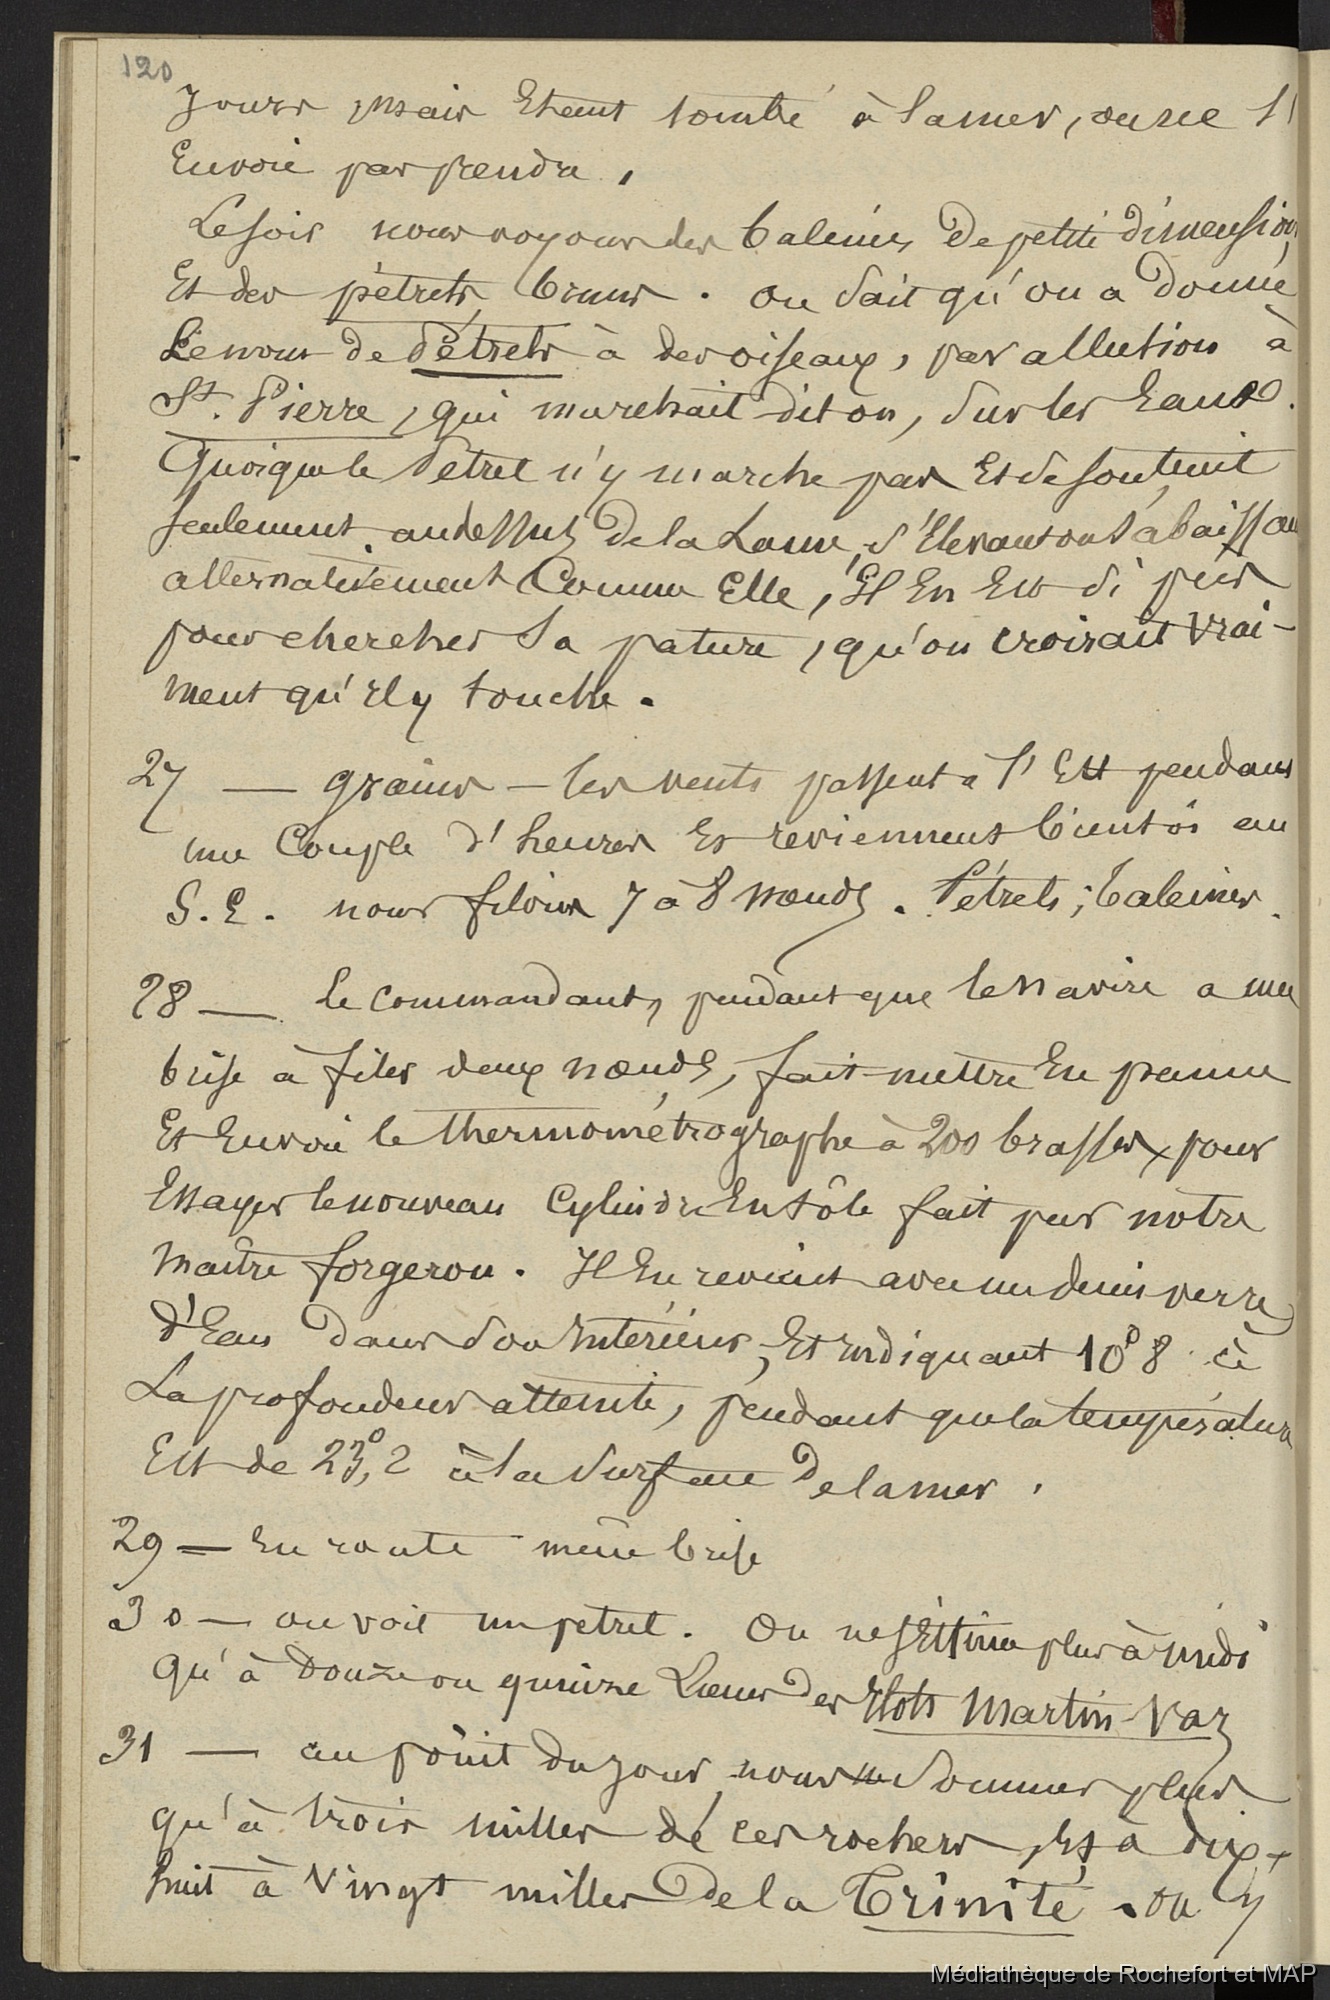 120
Jours, mais étant tombé à la mer, on ne l'
Envoie pas prendre.
Le soir nous voyons des baleines de petite dimension,
Et des pétrels bruns. On sait qu'on a donné
Le nom de Pétrels à des oiseaux, par allution à
St. Pierre, qui marchait dit on, sur les Eaux.
Quoique le Pétrel n'y marche pas Et se soutient
seulement au dessus de la Lame, s'élevant ou s'abaissant
alternativement Comme Elle, Il En Est si près
pour chercher sa pature, qu'on croirait vrai-
ment qu'il y touche.
27 — grains — les vents passent à l'Est pendant
une Couple d'heures Et reviennent bientôt au
S.E. nous filons 7 à 8 nœuds. Pétrels; baleines.
28 — Le commandant, pendant que le navire a une
brise à filer deux nœuds, fait mettre En panne
Et Envoie le thermométrographe à 200 brasses, pour
Essayer le nouveau Cylindre En tôle fait par notre
maître forgeron. Il En revient avec un demi verre
d'Eau dans son Intérieur, Et Indiquant 10° 8 à
La profondeur atteinte, pendant que la température
Est de 23°,2 à la surface de la mer.
29 — En route même brise
30 — on voit un petrel. On ne s'Estime plus à midi
qu'à Douze ou quinze Lieues des Ilots Martin-Vaz
31 — au point du jour, nous ne sommes plus
qu'à trois milles de ces rochers, Et à dix-
huit à Vingt milles de la Trinité. On y
Médiathèque de Rochefort et MAP